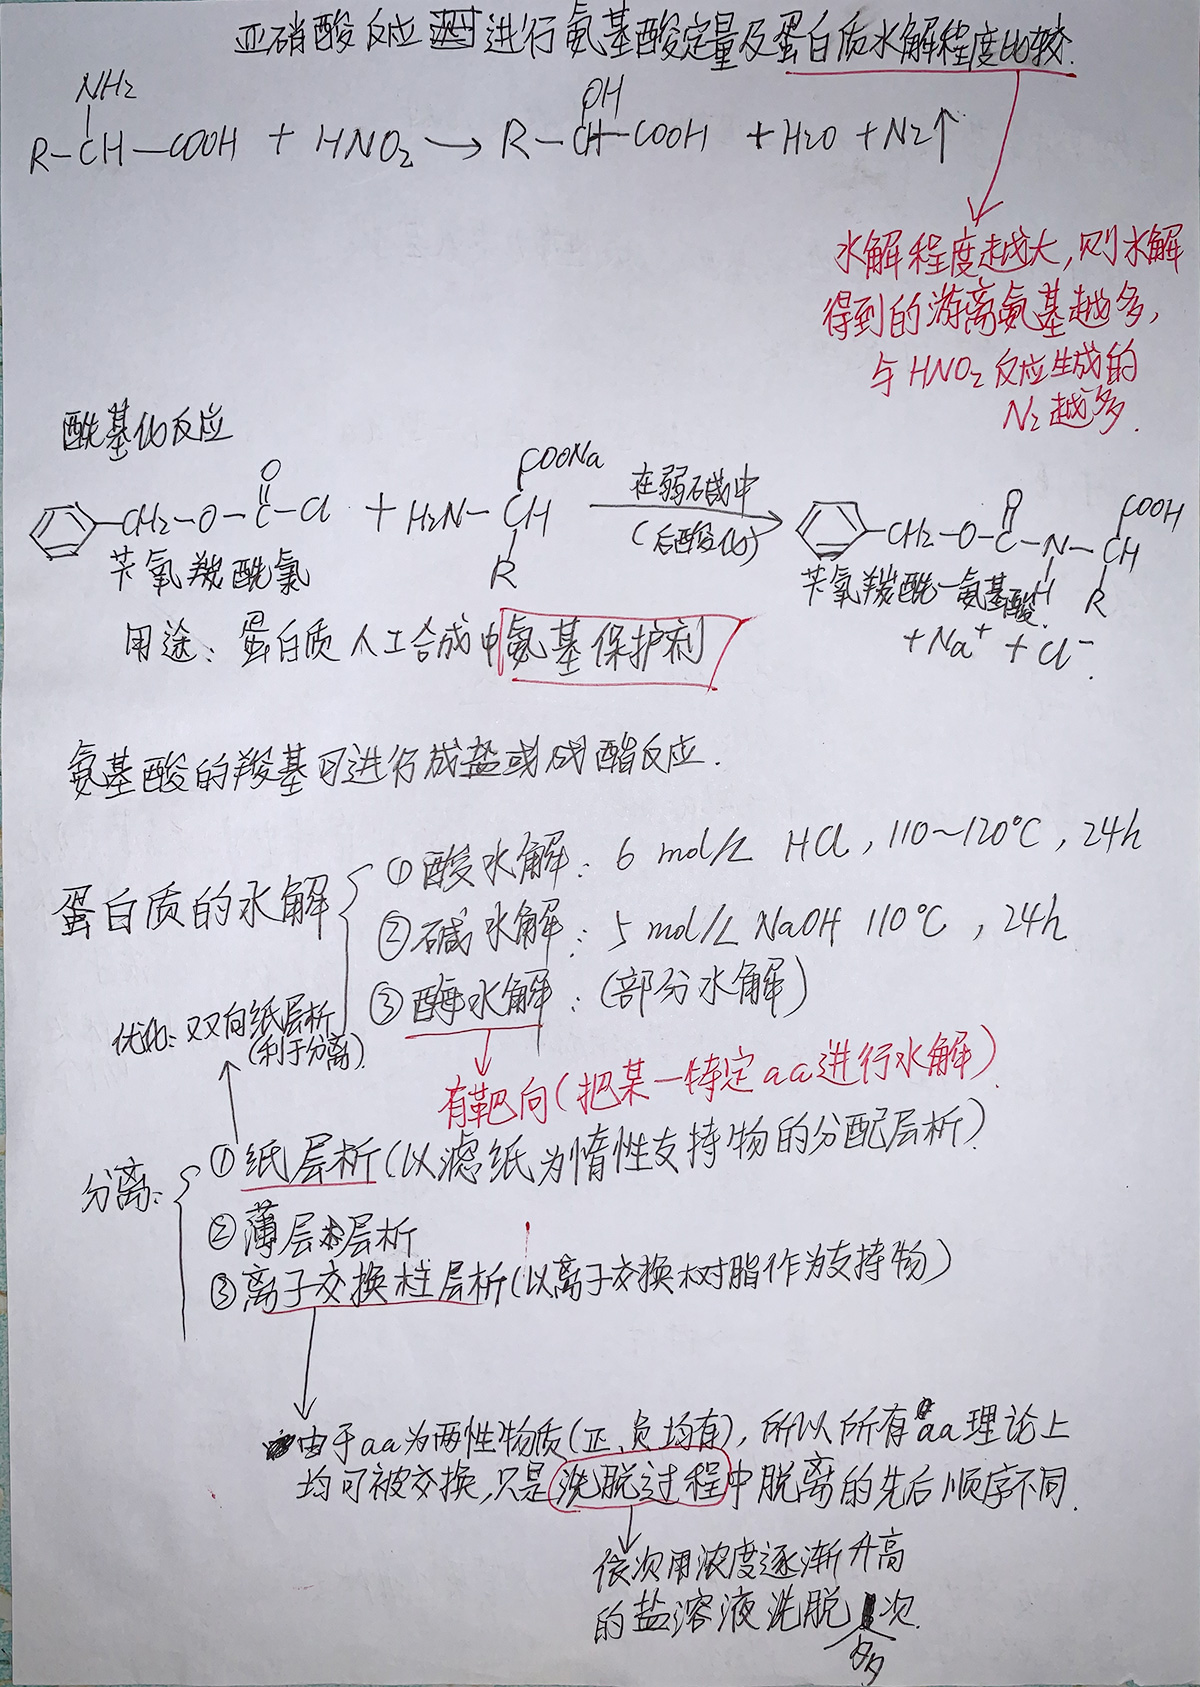 亚硝酸反应进行氨基酸定量及蛋白质水解程度比较.
NH₂
R—CH—COOH + HNO₂ → R—CH—COOH + H₂O + N₂↑
OH
水解程度越大,则水解
得到的游离氨基越多,
与HNO₂反应生成的
N₂越多.
酰基化反应
CH₂—O—C—Cl + H₂N—CH
O
COONa
R
在弱碱中
(后酸化)
CH₂—O—C—N—CH
O
COOH
H
R
苄氧羰酰氯
苄氧羰酰—氨基酸
+Na⁺ +Cl⁻.
用途: 蛋白质人工合成中氨基保护剂
氨基酸的羧基可进行成盐或成酯反应.
蛋白质的水解
①酸水解: 6 mol/L HCl, 110~120℃, 24h
②碱水解: 5 mol/L NaOH 110℃, 24h
③酶水解: (部分水解)
有靶向(把某一特定aa进行水解)
优化: 双向纸层析
(利于分离).
分离:
①纸层析(以滤纸为惰性支持物的分配层析)
②薄层层析
③离子交换柱层析(以离子交换树脂作为支持物)
由于aa为两性物质(正、负均有), 所以所有aa理论上
均可被交换,只是洗脱过程中脱离的先后顺序不同.
依次用浓度逐渐升高
的盐溶液洗脱多次.